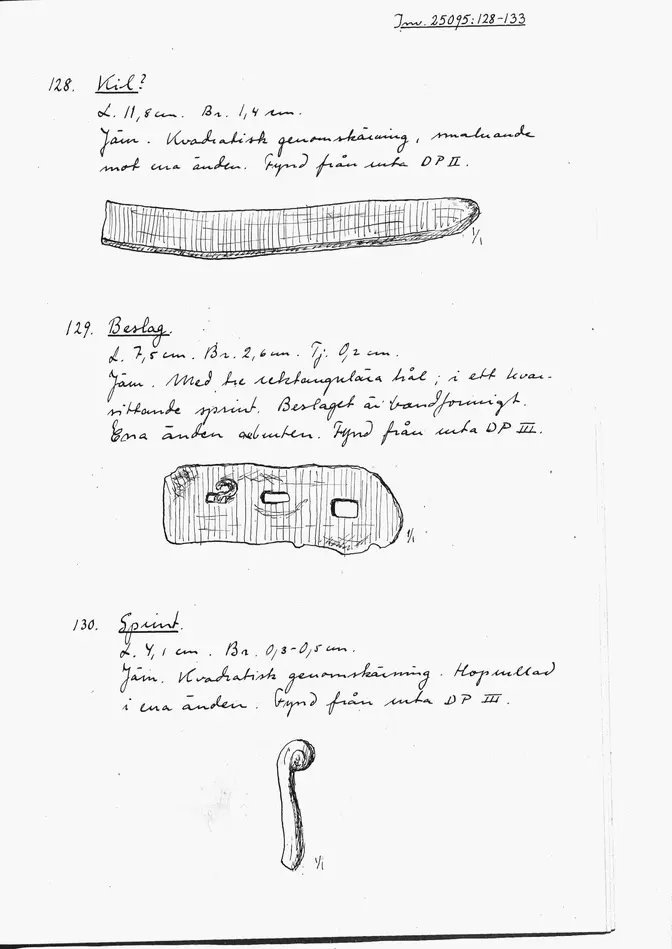 Inv. 25095:128-133
128. Kil?
L. 11,8 cm. Br. 1,4 cm.
Järn. Kvadratisk genomskärning, smalnande
mot ena änden. Fynd från ruta DP II.
1/1
129. Beslag.
L. 7,5 cm. Br. 2,6 cm. Tj. 0,2 cm.
Järn. Med tre rektangulära hål; i ett kvar-
sittande sprint. Beslaget är bandformigt.
Ena änden avbruten. Fynd från ruta DP III.
1/1
130. Sprint.
L. 4,1 cm. Br. 0,3-0,5 cm.
Järn. Kvadratisk genomskärning. Hoprullad
i ena änden. Fynd från ruta DP III.
1/1